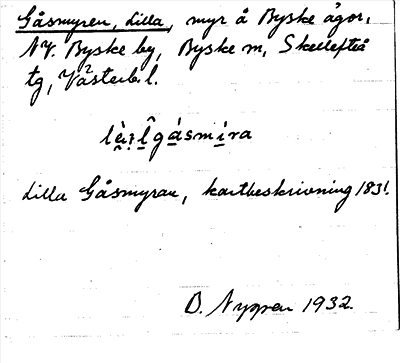 Gåsmyren, Lilla, myr å Byske ägor,
NV. Byske by, Byske sn, Skellefteå
tg, Västerb. l.
Lilla Gåsmyran, kartbeskrivning 1831.
O. Nygren 1932.